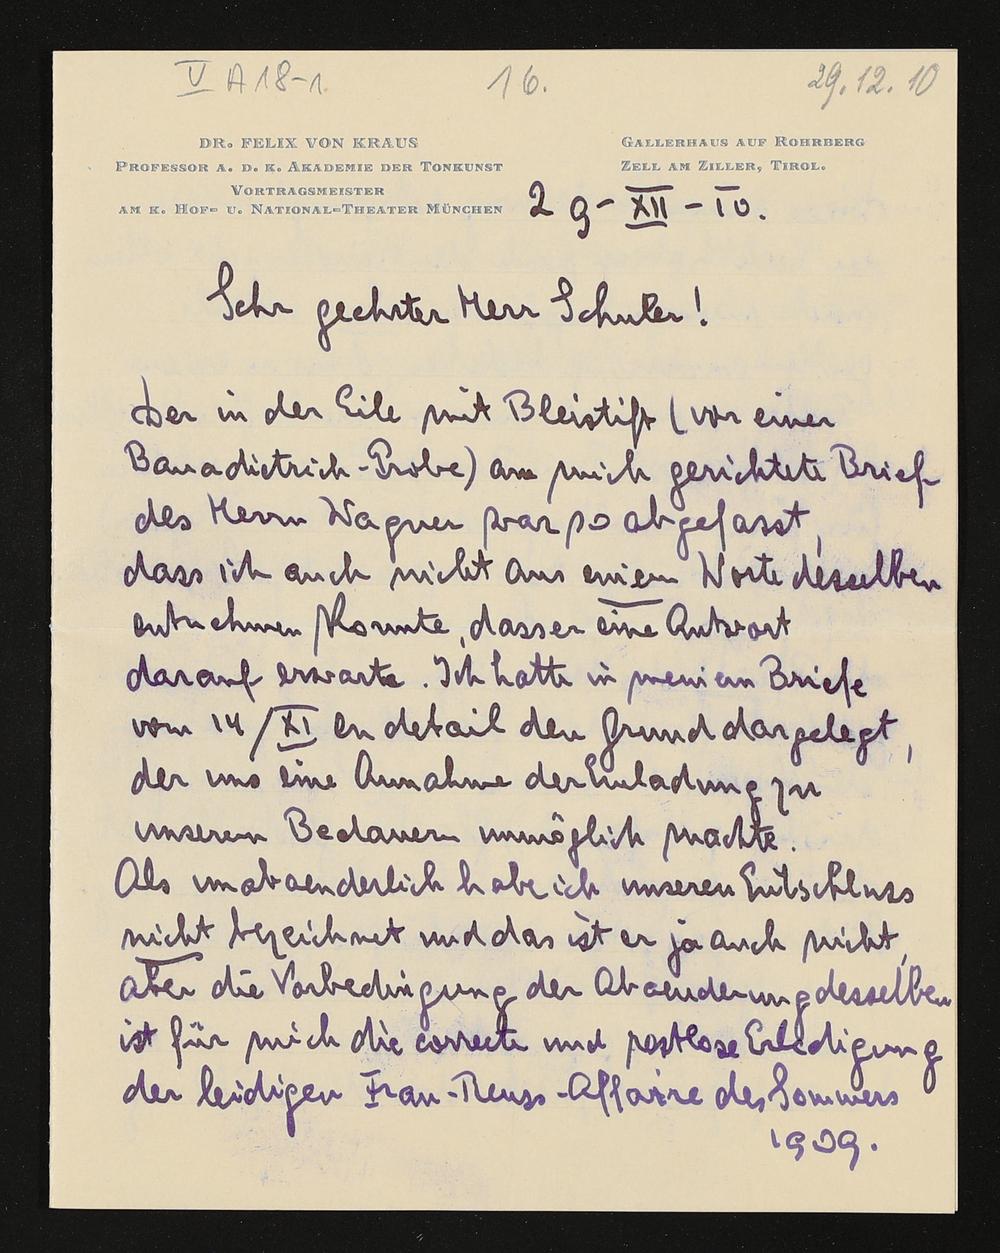 V A 18-1. 16. 29.12.10
DR. FELIX VON KRAUS
PROFESSOR A. D. K. AKADEMIE DER TONKUNST
VORTRAGSMEISTER
AM K. HOF- U. NATIONAL-THEATER MÜNCHEN
GALLERHAUS AUF ROHRBERG
ZELL AM ZILLER, TIROL.
29-XII-10.
Sehr geehrter Herr Schuler!
Der in der Eile mit Bleistift (vor einer
Banadietrich-Probe) an mich gerichtete Brief
des Herrn Wagner war so abgefasst,
dass ich auch nicht aus einem Worte desselben
entnehmen konnte, dass er eine Antwort
darauf erwarte. Ich hatte in meinem Briefe
vom 14/XI en detail den Grund dargelegt,
der uns eine Annahme der Einladung zu
unserem Bedauern unmöglich machte.
Als unabaenderlich habe ich unseren Entschluss
nicht bezeichnet und das ist er ja auch nicht,
aber die Vorbedingung der Abaenderung desselben
ist für mich die correcte und restlose Erledigung
der leidigen Frau-Reuss-Affaire des Sommers
1909.